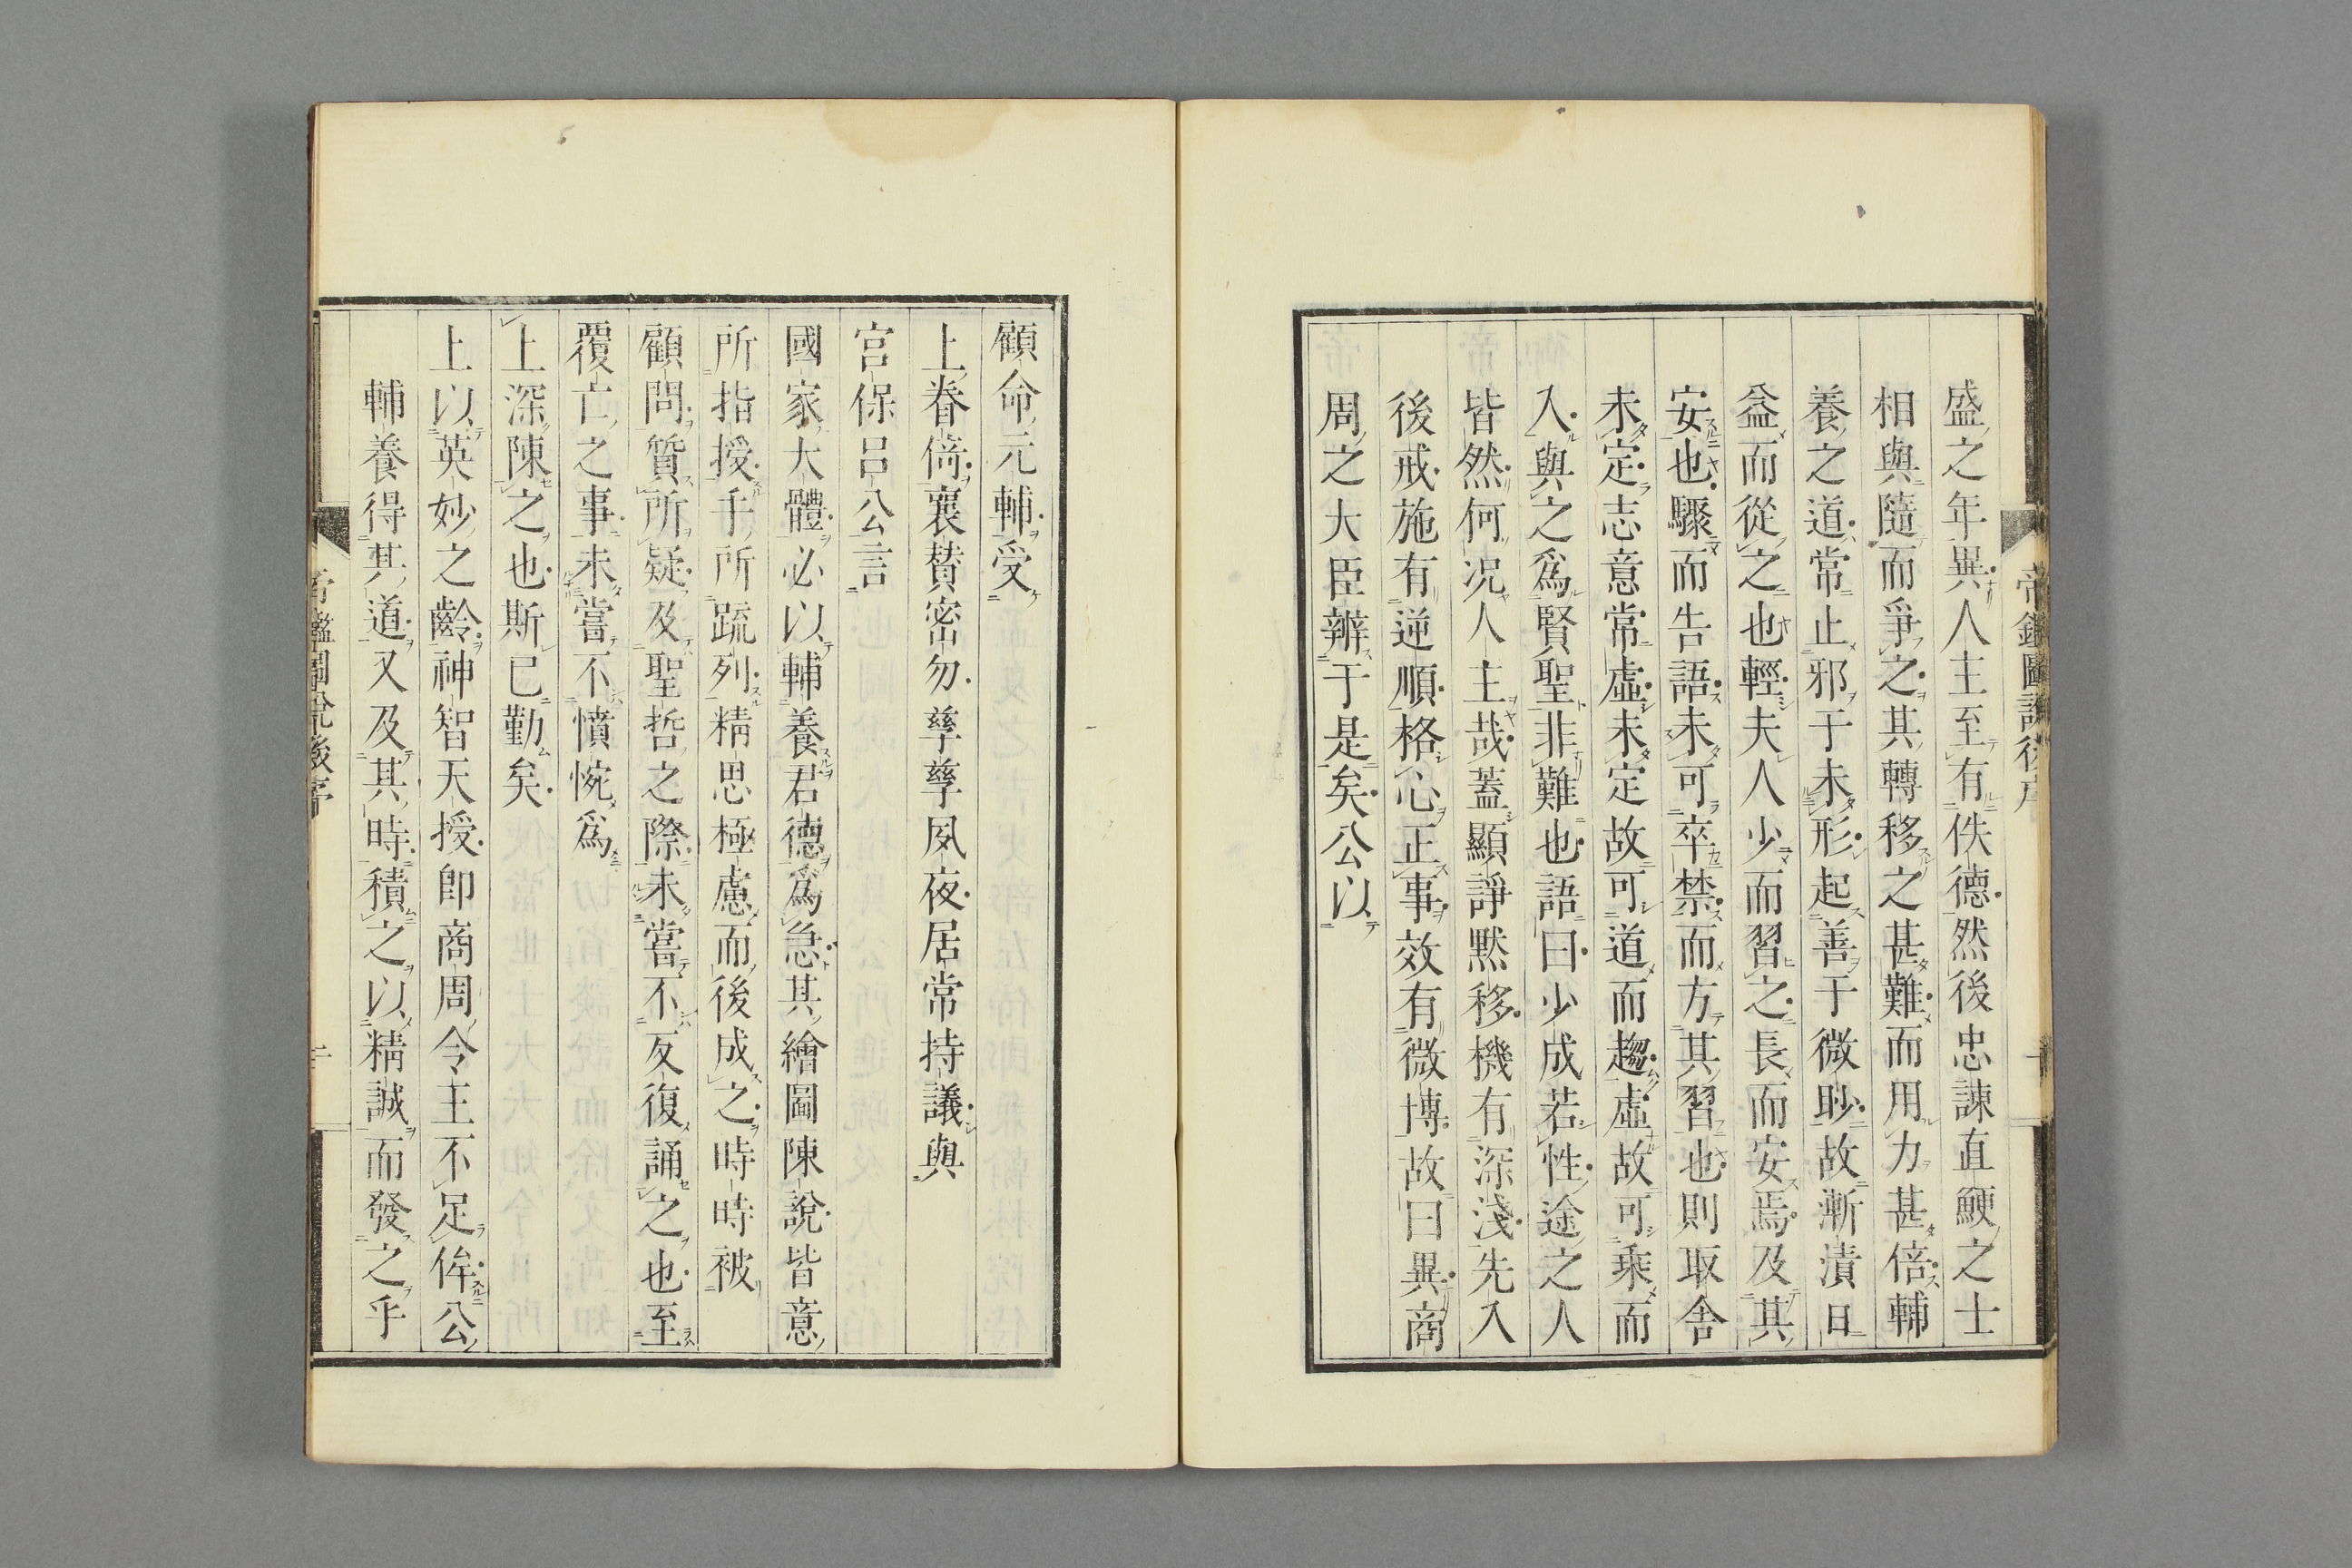 帝鑑圖說後序
盛之年異人主至有佚德然後忠諫直鯁之士
相與隨而爭之其轉移之甚難而用力甚倍輔
養之道常止邪于未形起善于微眇故漸漬日
益而從之也輕夫人少而習之長而安焉及其
安也驟而告語未可卒禁而方其習也則取舍
未定志意常虛未定故可道而趨虛故可乗而
入與之爲賢聖非難也語曰少成若性途之人
皆然何况人主哉蓋顯諍默移機有深淺先入
後戒施有逆順格心正事效有微博故曰異商
周之大臣辨于是矣公以
顧命元輔受
上眷倚襄賛密勿孳孳夙夜居常持議與
宫保呂公言
國家大體必以輔養君德爲急其繪圖陳說皆意
所指授手所疏列精思極慮而後成之時時被
顧問質所疑及聖哲之際未嘗不反復誦之也至
覆亡之事未嘗不憤惋爲
上深陳之也斯已勤矣
上以英妙之齡神智天授卽商周令王不足侔公
輔養得其道又及其時積之以精誠而發之乎
帝鑑圖說後序 二